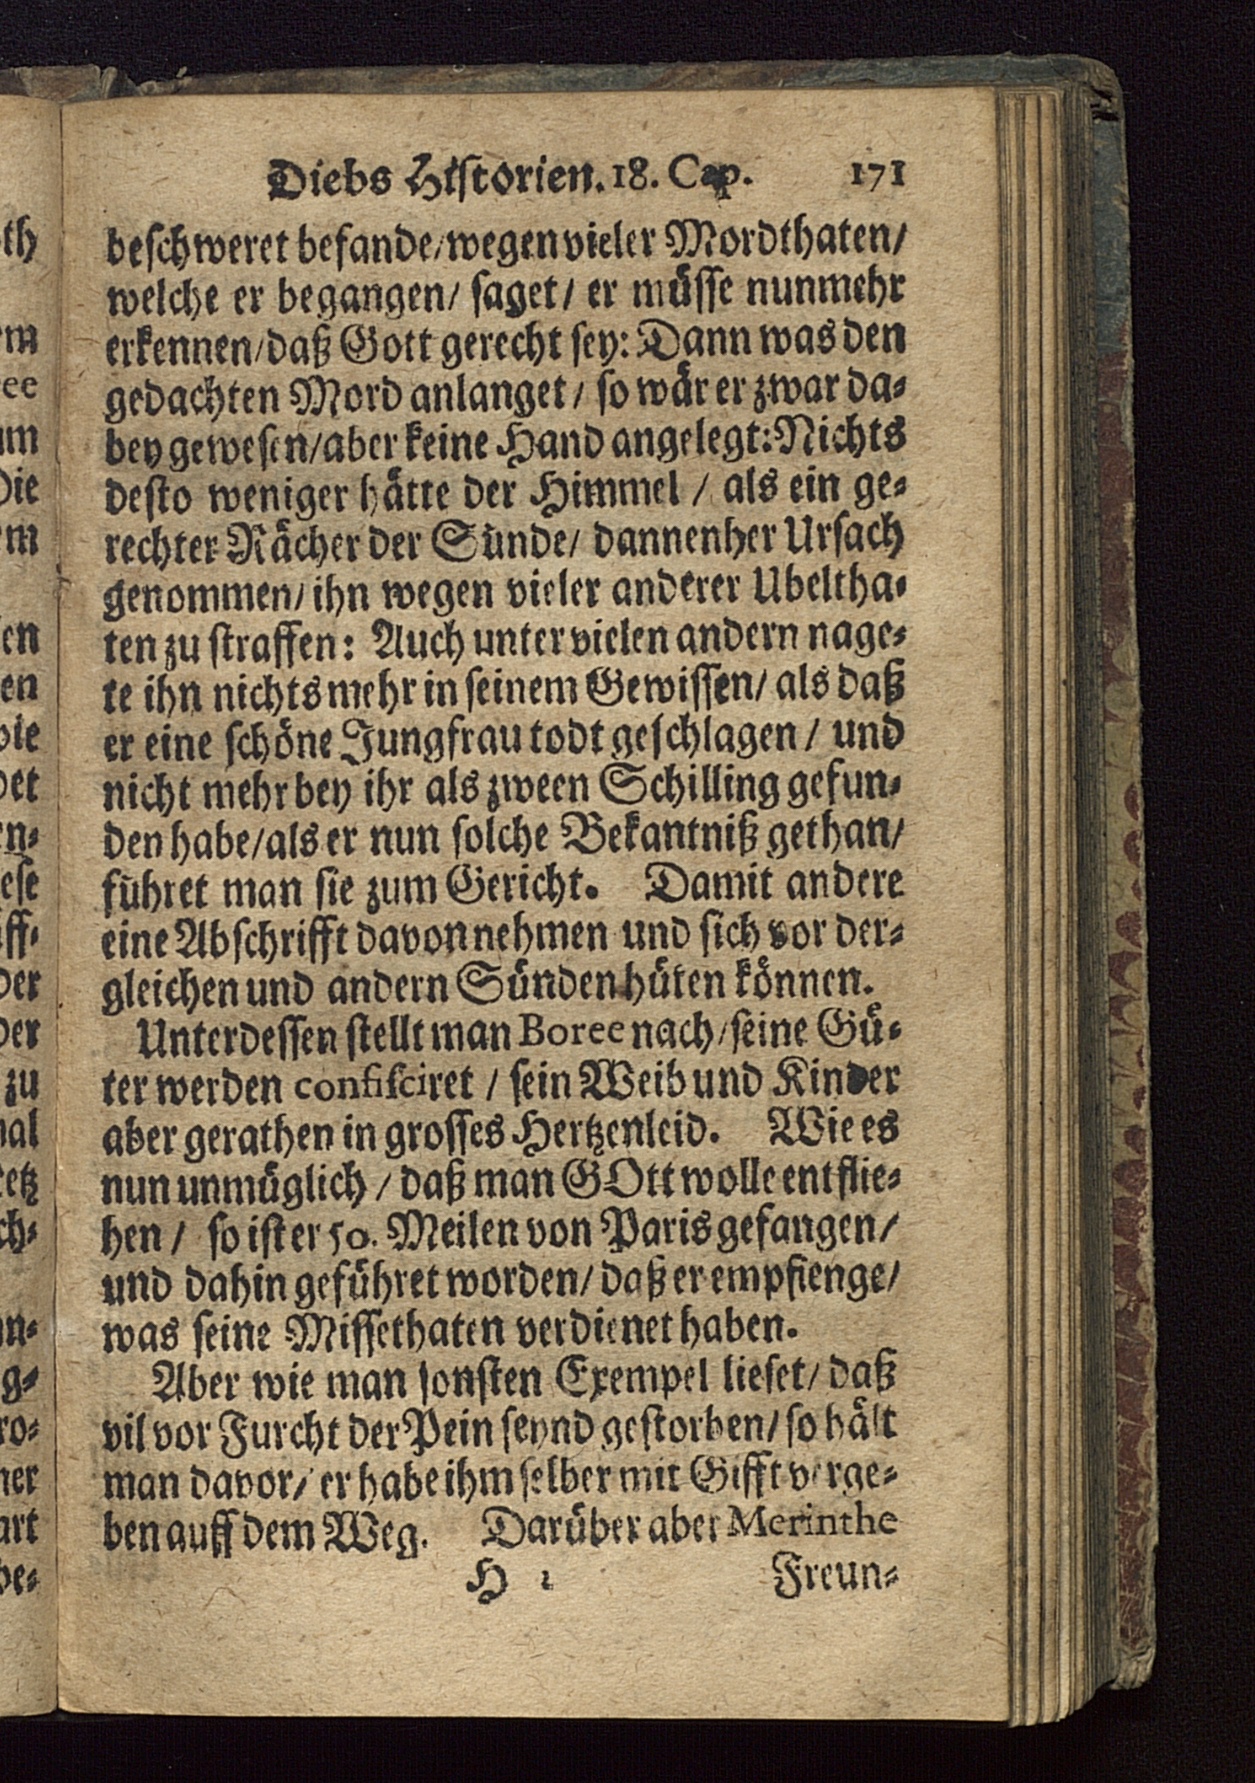 Diebs Historien. 18. Cap. 171
beschweret befande/wegen vieler Mordthaten/
welche er begangen/ saget/ er müsse nunmehr
erkennen/daß Gott gerecht sey: Dann was den
gedachten Mord anlanget/ so wär er zwar da-
bey gewesen/aber keine Hand angelegt: Nichts
desto weniger hätte der Himmel / als ein ge-
rechter Rächer der Sünde/ dannenher Ursach
genommen/ ihn wegen vieler anderer Ubeltha-
ten zu straffen: Auch unter vielen andern nage-
te ihn nichts mehr in seinem Gewissen/ als daß
er eine schöne Jungfrau todt geschlagen/ und
nicht mehr bey ihr als zween Schilling gefun-
den habe/als er nun solche Bekantniß gethan/
führet man sie zum Gericht. Damit andere
eine Abschrifft davon nehmen und sich vor der-
gleichen und andern Sünden hüten können.
Unterdessen stellt man Boree nach/seine Gü-
ter werden confisciret / sein Weib und Kinder
aber gerathen in grosses Hertzenleid. Wie es
nun unmüglich / daß man GOtt wolle entflie-
hen / so ist er 50. Meilen von Paris gefangen/
und dahin geführet worden/ daß er empfienge/
was seine Missethaten verdienet haben.
Aber wie man sonsten Exempel lieset/ daß
vil vor Furcht der Pein seynd gestorben/ so hält
man davor/ er habe ihm selber mit Gifft verge-
ben auff dem Weg. Darüber aber Merinthe
H Freun-
th
em
ree
um
Die
em
en
en
det
en-
ese
iff-
der
der
zu
mal
etz
ch-
n-
g-
ro-
ner
art
be-